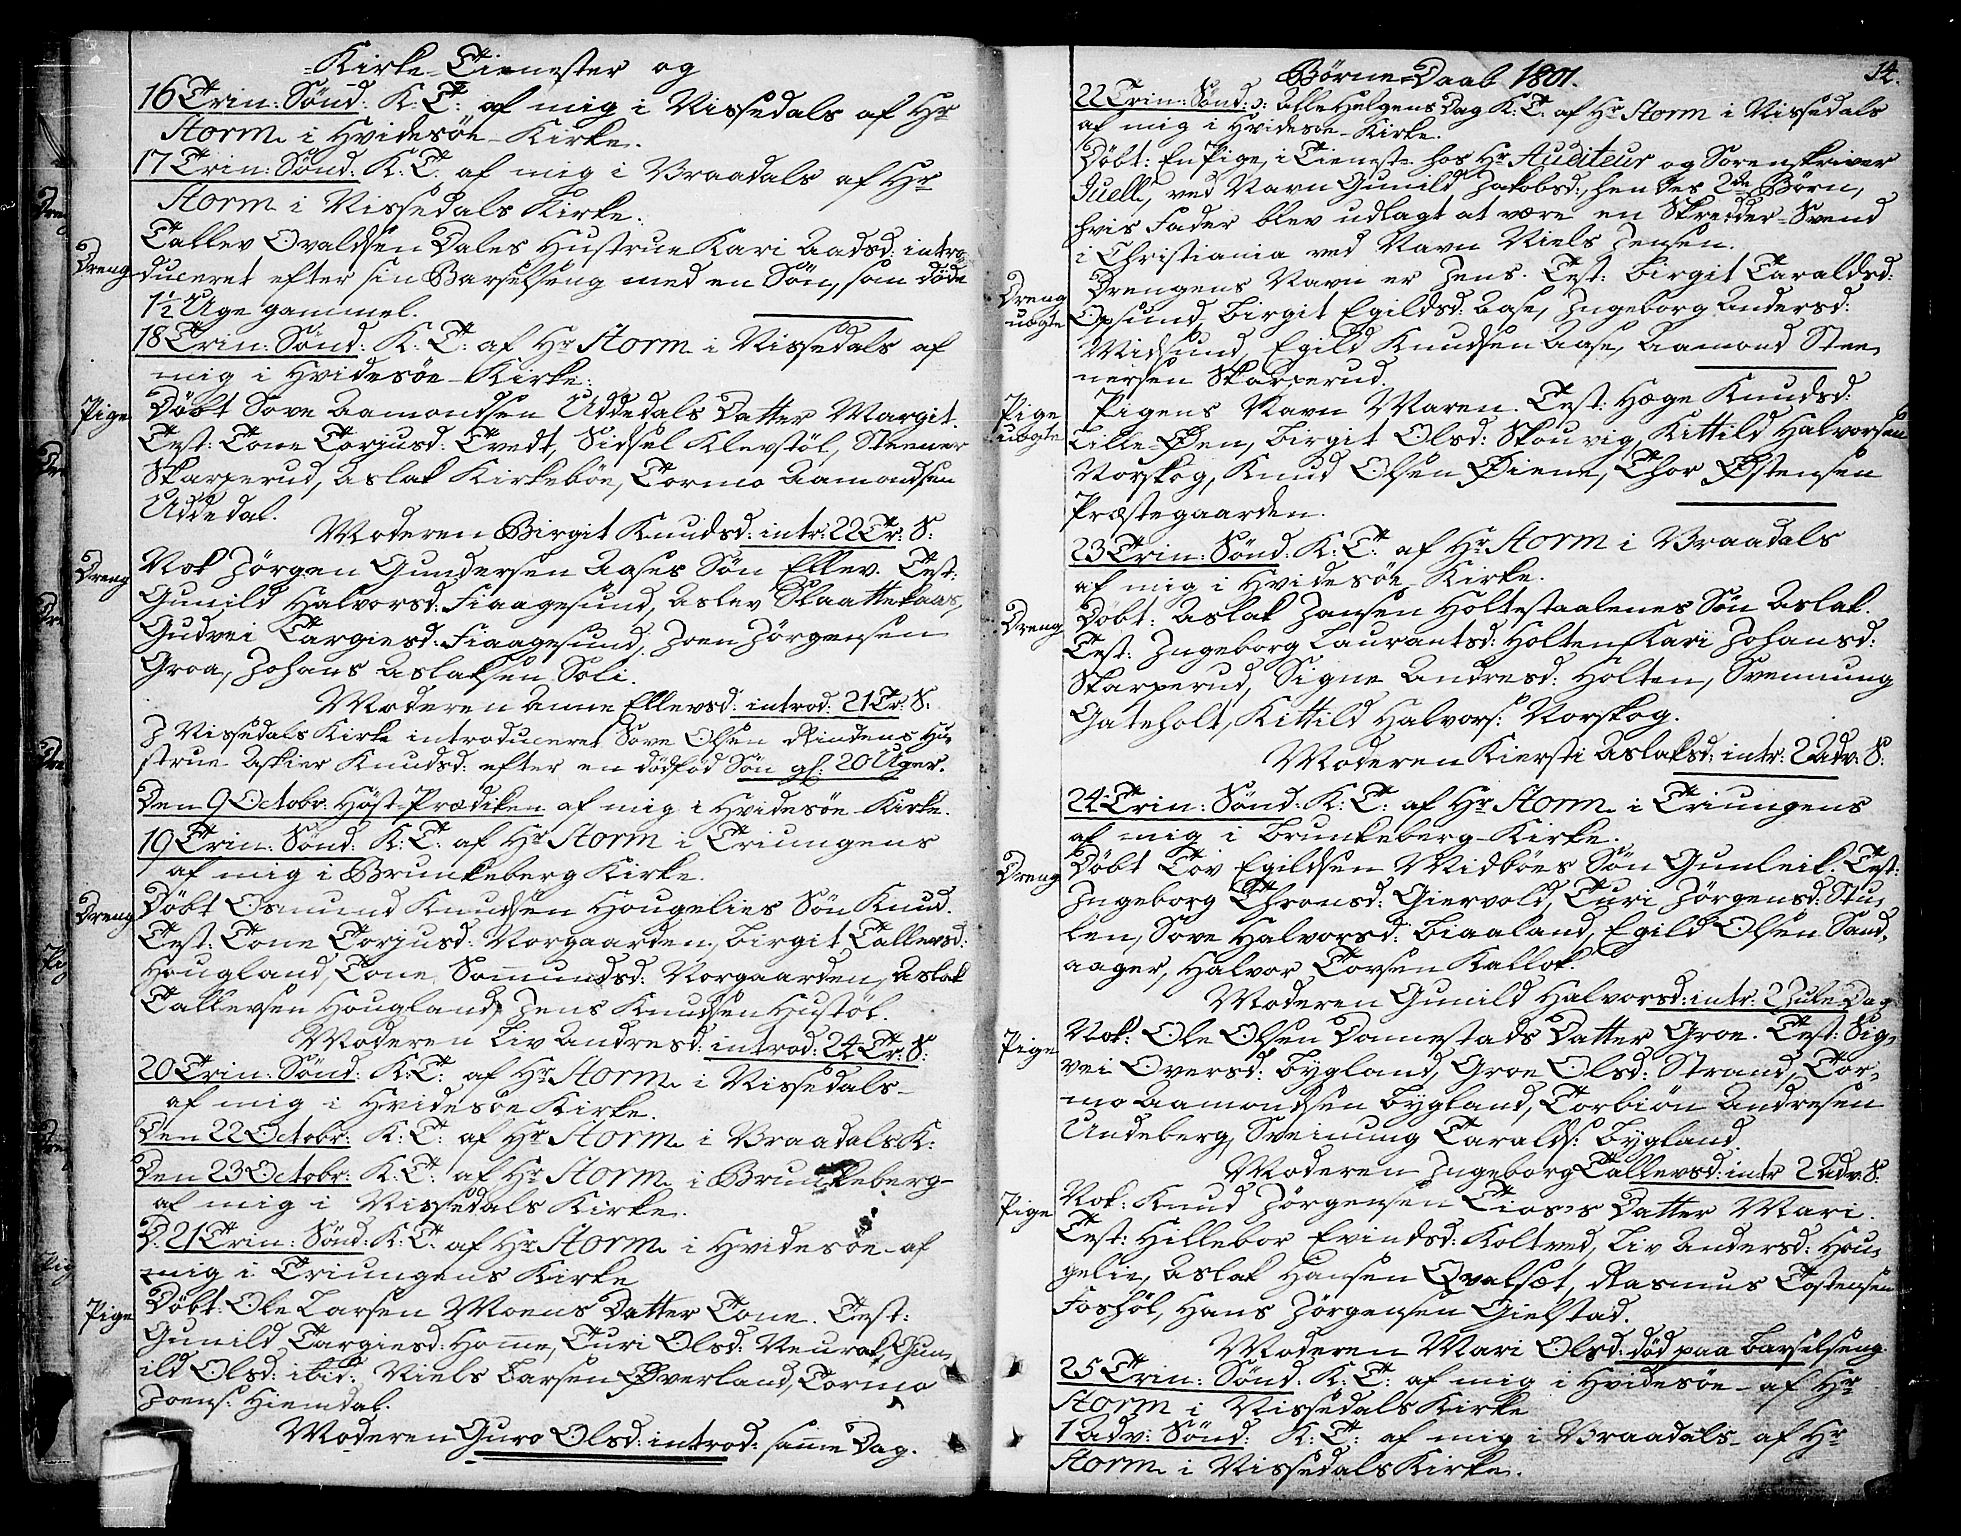 Kirke-Tienester og
16 Trin: Sønd: K: T: af mig i Nissedals af Hr
Storm i Hvidesøe-Kirke.
17 Trin: Sønd: K: T: af mig i Vraadals af Hr
Storm i Nissedals Kirke.
Tallev Ovaldsen Dales Hustrue Kari Aadsd: intro-
Dreng duceret efter sin Barselseng med en Søn, som døde
1½ Uge gammel.
18 Trin: Sønd: K: T: af Hr Storm i Nissedals af
mig i Hvidesøe-Kirke:
Pige Døbt Sove Aamondsen Uddedals Datter Margit.
Test: Tone Torjusd: Tvedt, Sidsel Klevstøl, Steener
Skarperud, Aslak Kirkebøe, Tormo Aamondsen
Uddedal.
Moderen Birgit Knudsd: intr: 22 Tr: S:
Dreng Nok Jørgen Gundersen Aases Søn Ellev. Test:
Gunild Halvorsd: Fiaagesund, Aslev Slaattekaas,
Gudvei Targiesd: Fiaagesund, Joen Jørgensen
Groa, Johans Aslaksen Soli.
Moderen Anne Ellevsd: introd: 21 Tr: S:
I Nissedals Kirke introduceret Sove Olsen Rindens Hu-
strue Askier Knudsd: efter en dødfød Søn gl: 20 Uger.
Den 9 Octobr: Høst-Prædiken af mig i Hvidesøe-Kirke.
19 Trin: Sønd: K: T: af Hr Storm i Triungens
af mig i Brunkeberg Kirke.
Dreng Døbt Osmund Knudsen Hougelies Søn Knud.
Test: Tone Torjusd: Norgaarden, Birgit Tallevsd:
Hougland, Tone Somundsd: Norgaarden, Aslak
Tallevsen Hougland, Jens Knudsen Hustøl.
Moderen Liv Andresd: introd: 24 Tr: S:
20 Trin: Sønd: K: T: af Hr Storm i Nissedals-
af mig i Hvidesøe Kirke.
Den 22 Octobr: K: T: af Hr Storm i Vraadals K:
Den 23 Octobr: K: T: af Hr Storm i Brunkeberg-
af mig i Nissedals Kirke.
D. 21 Trin: Sønd: K: T: af Hr Storm i Hvidesøe-af
mig i Triungens Kirke
Pige Døbt: Ole Larsen Moens Datter Tone. Test:
Gunild Targiesd: Home, Turi Olsd: Neurak, Gun-
ild Olsd: ibid: Niels Larsen Øverland, Tormo
Joens: Hiemdal.
Moderen Guro Olsd: introd: same Dag.
Børne-Daab 1801. 14.
22 Trin: Sønd: ɔ: Alle Helgens Dag K: T: af Hr Storm i Nissedals
af mig i Hvidesøe-Kirke.
Døbt: En Pige, i Tieneste hos Hr Auditeur og Sorenskriver
Juell, ved Navn Gunild Jakobsd:, hendes 2de Børn,
hvis Fader blev udlagt at være en Skredder-Svend
i Christiania ved Navn Niels Jensen.
Dreng uægte Drengens Navn er Jens. Test: Birgit Taraldsd:
Opsund, Birgit Egildsd: Aase, Ingeborg Andersd:
Midsund, Egild Knudsen Aase, Aamond Stee-
nersen Skarperud.
Pige uægte Pigens Navn Maren. Test: Hæge Knudsd:
Lille-Øen, Birgit Olsd: Skouvig, Kittild Halvorsen
Norskog, Knud Olsen Øiene, Thor Østensen
Præstegaarden.
23 Trin: Sønd: K: T: af Hr Storm i Vraadals
af mig i Hvidesøe-Kirke.
Dreng Døbt: Aslak Jansen Holtestaalenes Søn Aslak.
Test: Ingeborg Laurantsd: Holten, Kari Johansd:
Skarperud, Signe Andresd: Holten, Svennung
Gateholt, Kittild Halvors: Norskog.
Moderen Kiersti Aslaksd: intr: 2 Adv: S:
24 Trin: Sønd: K: T: af Hr Storm i Triungens
af mig i Brunkeberg-Kirke.
Dreng Døbt Tov Egildsen Midbøes Søn Gunleik. Test:
Ingeborg Thronsd: Giervold, Turi Jørgensd: Stu-
len, Sove Halvorsd: Biaaland, Egild Olsen Sand-
aager, Halvor Torsen Kallok.
Moderen Gunild Halvorsd: intr: 2 Jule-Dag
Pige Nok: Ole Olsen Dannestads Datter Groe. Test: Sig-
vei Oversd: Bygland, Groe Olsd: Strand, Tor-
mo Aamondsen Bygland, Torbiøn Andresen
Undeberg, Sveinung Taralds: Bygland.
Moderen Ingeborg Tallevsd: intr 2 Adv: S:
Pige Nok: Knud Jørgensen Tioses Datter Mari.
Test: Hillebor Evindsd: Koltved, Liv Andersd: Hou-
gelie, Aslak Hansen Qvalsæt, Rasmus Tostensen
Foshøl, Hans Jørgensen Gielstad.
Moderen Mari Olsd: død paa Barselseng
25 Trin: Sønd: K: T: af mig i Hvidesøe-af Hr
Storm i Nissedals Kirke
1 Adv: Sønd: K: T: af mig i Vraadals-af Hr
Storm i Nissedals Kirke.